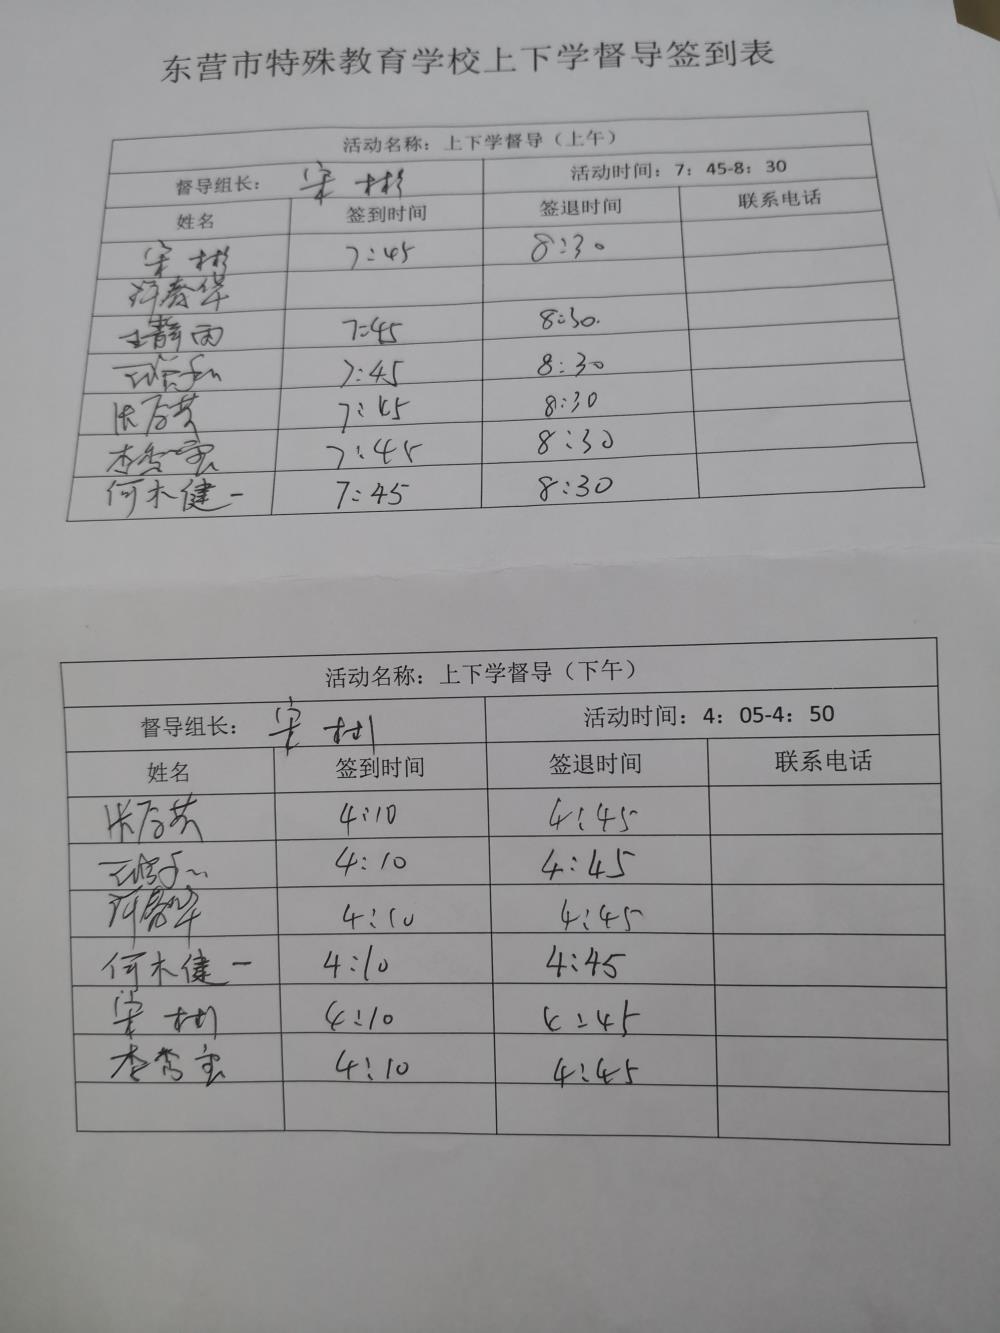 东营市特殊教育学校上下学督导签到表
活动名称：上下学督导（上午）
督导组长： 宋彬 活动时间：7：45-8：30
姓名 签到时间 签退时间 联系电话
宋彬 7:45 8:30
7:45 8:30
7:45 8:30
7:45 8:30
7:45 8:30
何木健一 7:45 8:30
活动名称：上下学督导（下午）
督导组长： 宋彬 活动时间：4：05-4：50
姓名 签到时间 签退时间 联系电话
4:10 4:45
4:10 4:45
4:10 4:45
何木健一 4:10 4:45
宋彬 4:10 4:45
4:10 4:45